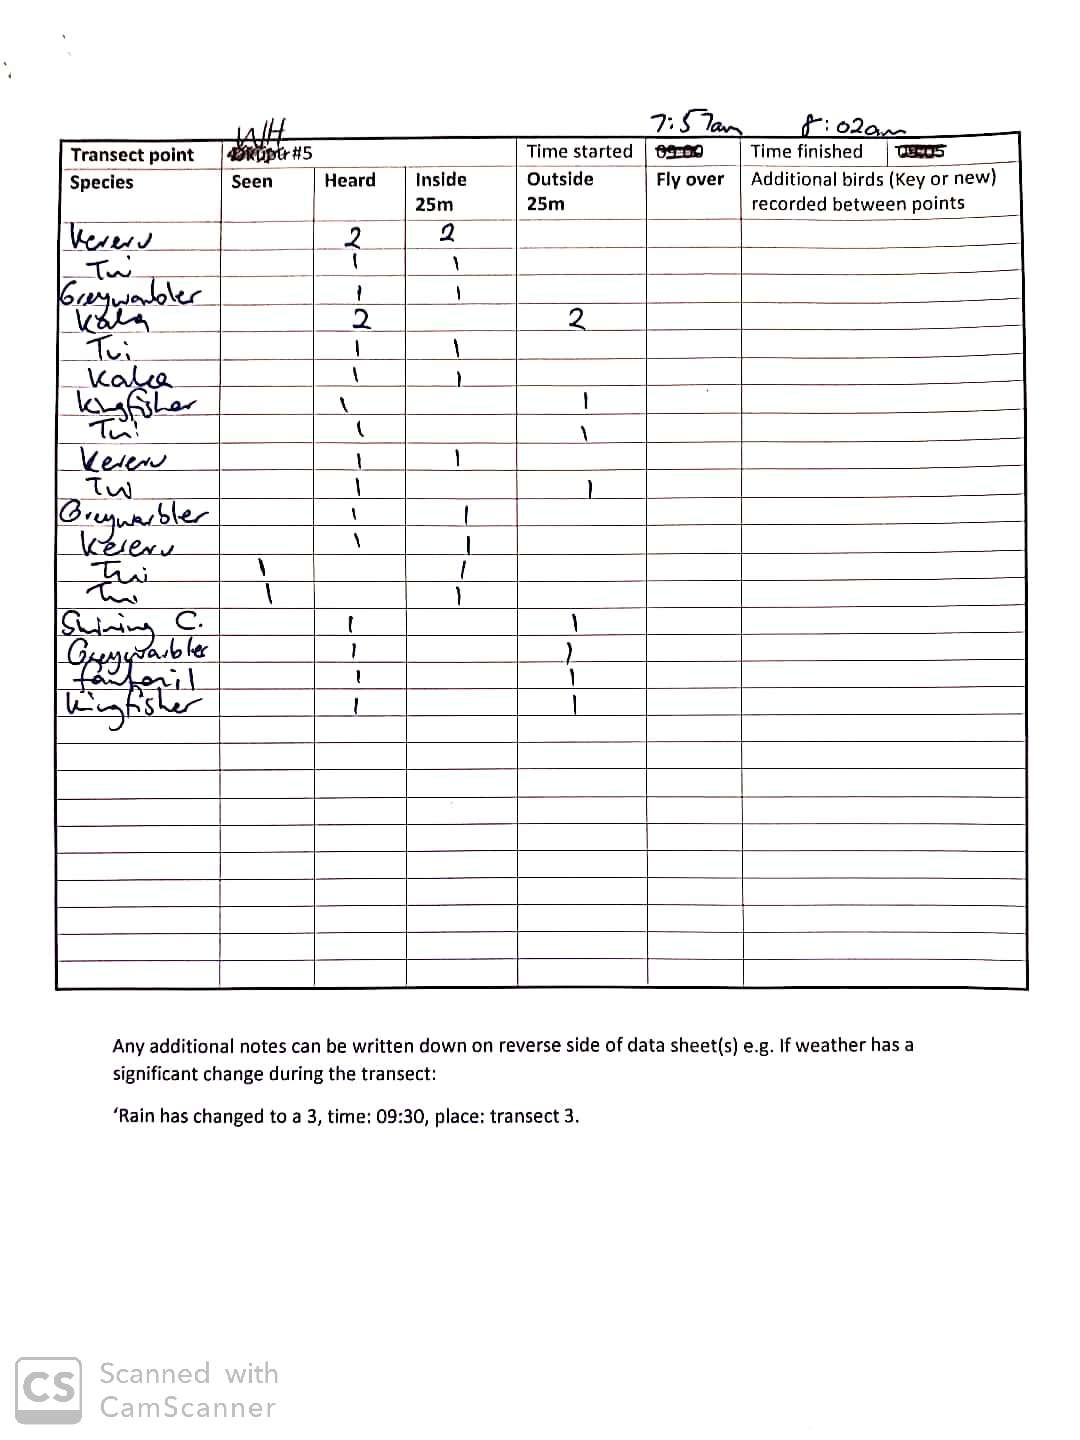 WH 7:57am 8:02am
Transect point #5 Time started 09:00 Time finished 09:05
Species Seen Heard Inside 25m Outside 25m Fly over Additional birds (Key or new) recorded between points
Kereru 2 2
Tui 1 1
Greywarbler 1 1
Kaka 2 2
Tui 1 1
Kaka 1 1
Kingfisher 1 1
Tui 1 1
Kereru 1 1
Tui 1 1
Greywarbler 1 1
Kereru 1 1
Tui 1 1
Tui 1 1
Shining C. 1 1
Greywarbler 1 1
fantail 1 1
Kingfisher 1 1
Any additional notes can be written down on reverse side of data sheet(s) e.g. If weather has a
significant change during the transect:
‘Rain has changed to a 3, time: 09:30, place: transect 3.
CS Scanned with
CamScanner